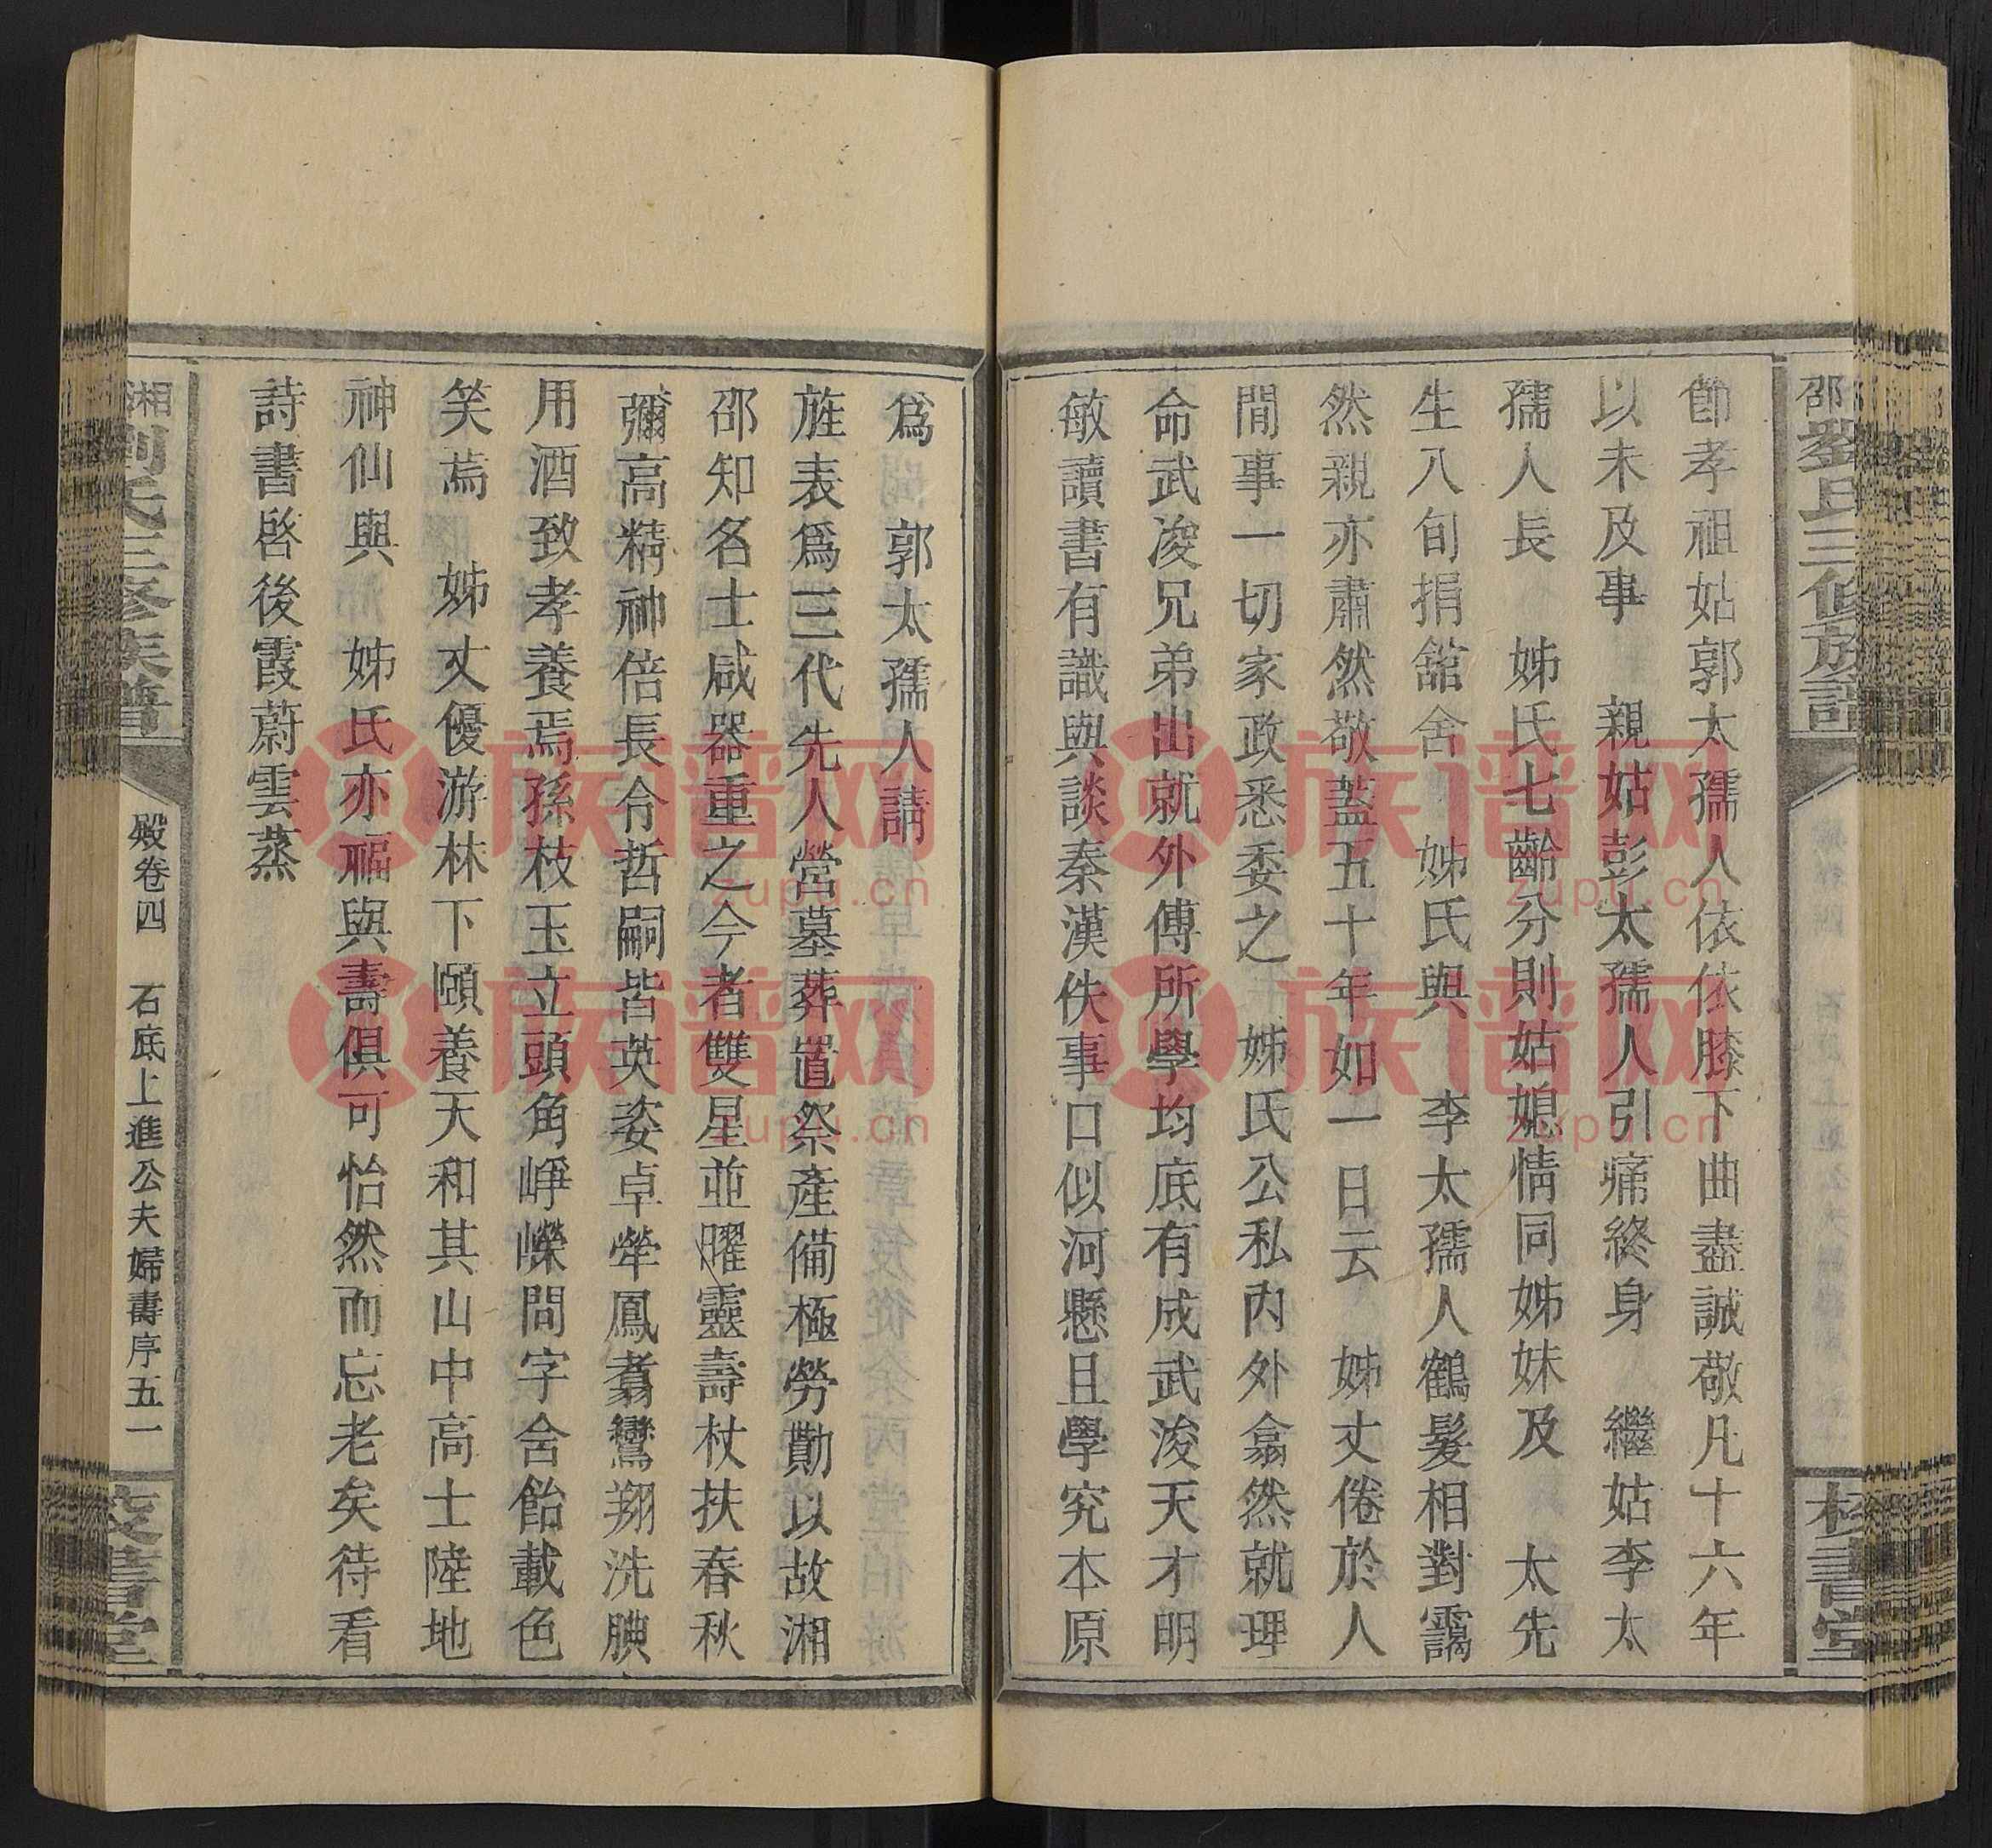 邵劉氏三修族譜
校書堂
節孝祖姑郭太孺人依依膝下曲盡誠敬凡十六年
以未及事　親姑彭太孺人引痛終身　繼姑李太
孺人長　姊氏七齡分則姑媳情同姊妹及　太先
生八旬捐舘舍　姊氏與　李太孺人鶴髮相對靄
然親亦肅然敬蓋五十年如一日云　姊丈倦於人
間事一切家政悉委之　姊氏公私內外翕然就理
命武浚兄弟出就外傅所學均底有成武浚天才明
敏讀書有識與談秦漢佚事口似河懸且學究本原
爲　郭太孺人請
旌表爲三代先人營墓葬置祭產備極勞勩以故湘
邵知名士咸器重之今者雙星並曜靈壽杖扶春秋
彌高精神倍長令哲嗣皆英姿卓犖鳳翥鸞翔洗腆
用酒致孝養焉孫枝玉立頭角崢嶸問字含飴載色
笑焉　姊丈優游林下頤養天和其山中高士陸地
神仙與　姊氏亦福與壽俱可怡然而忘老矣待看
詩書啓後霞蔚雲蒸
湘劉氏三修族譜
殿卷四　石底上進公夫婦壽序五一
校書堂
族谱网
zupu.cn
族谱网
zupu.cn
族谱网
zupu.cn
族谱网
zupu.cn